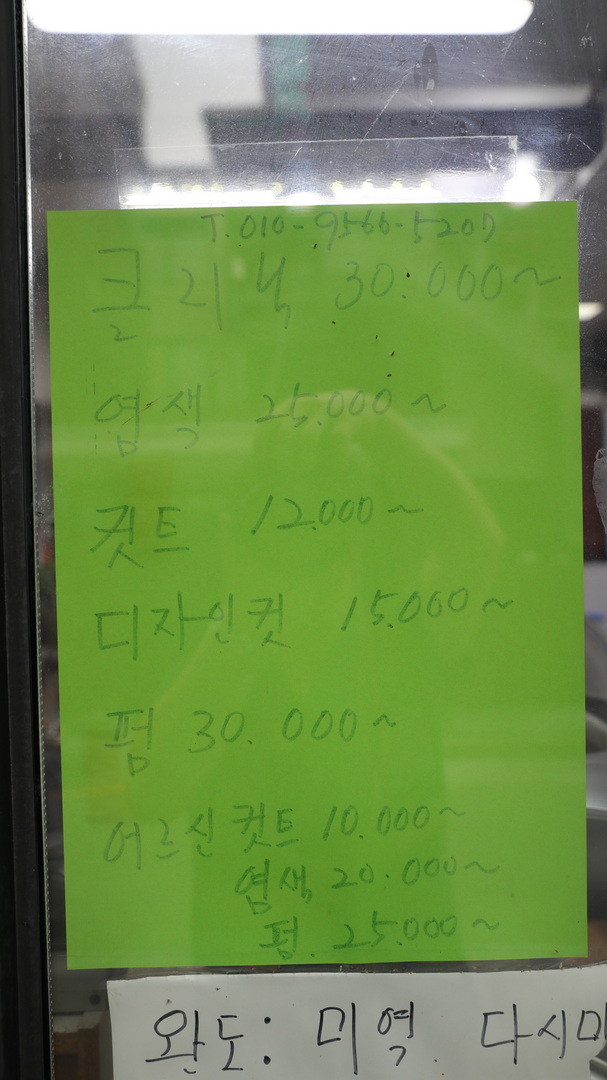 T.010-9566-5207
클리닉 30.000~
염색 25.000~
컷트 12.000~
디자인컷 15.000~
펌 30.000~
어르신 컷트 10.000~
염색 20.000~
펌. 25.000~
완도: 미역. 다시마